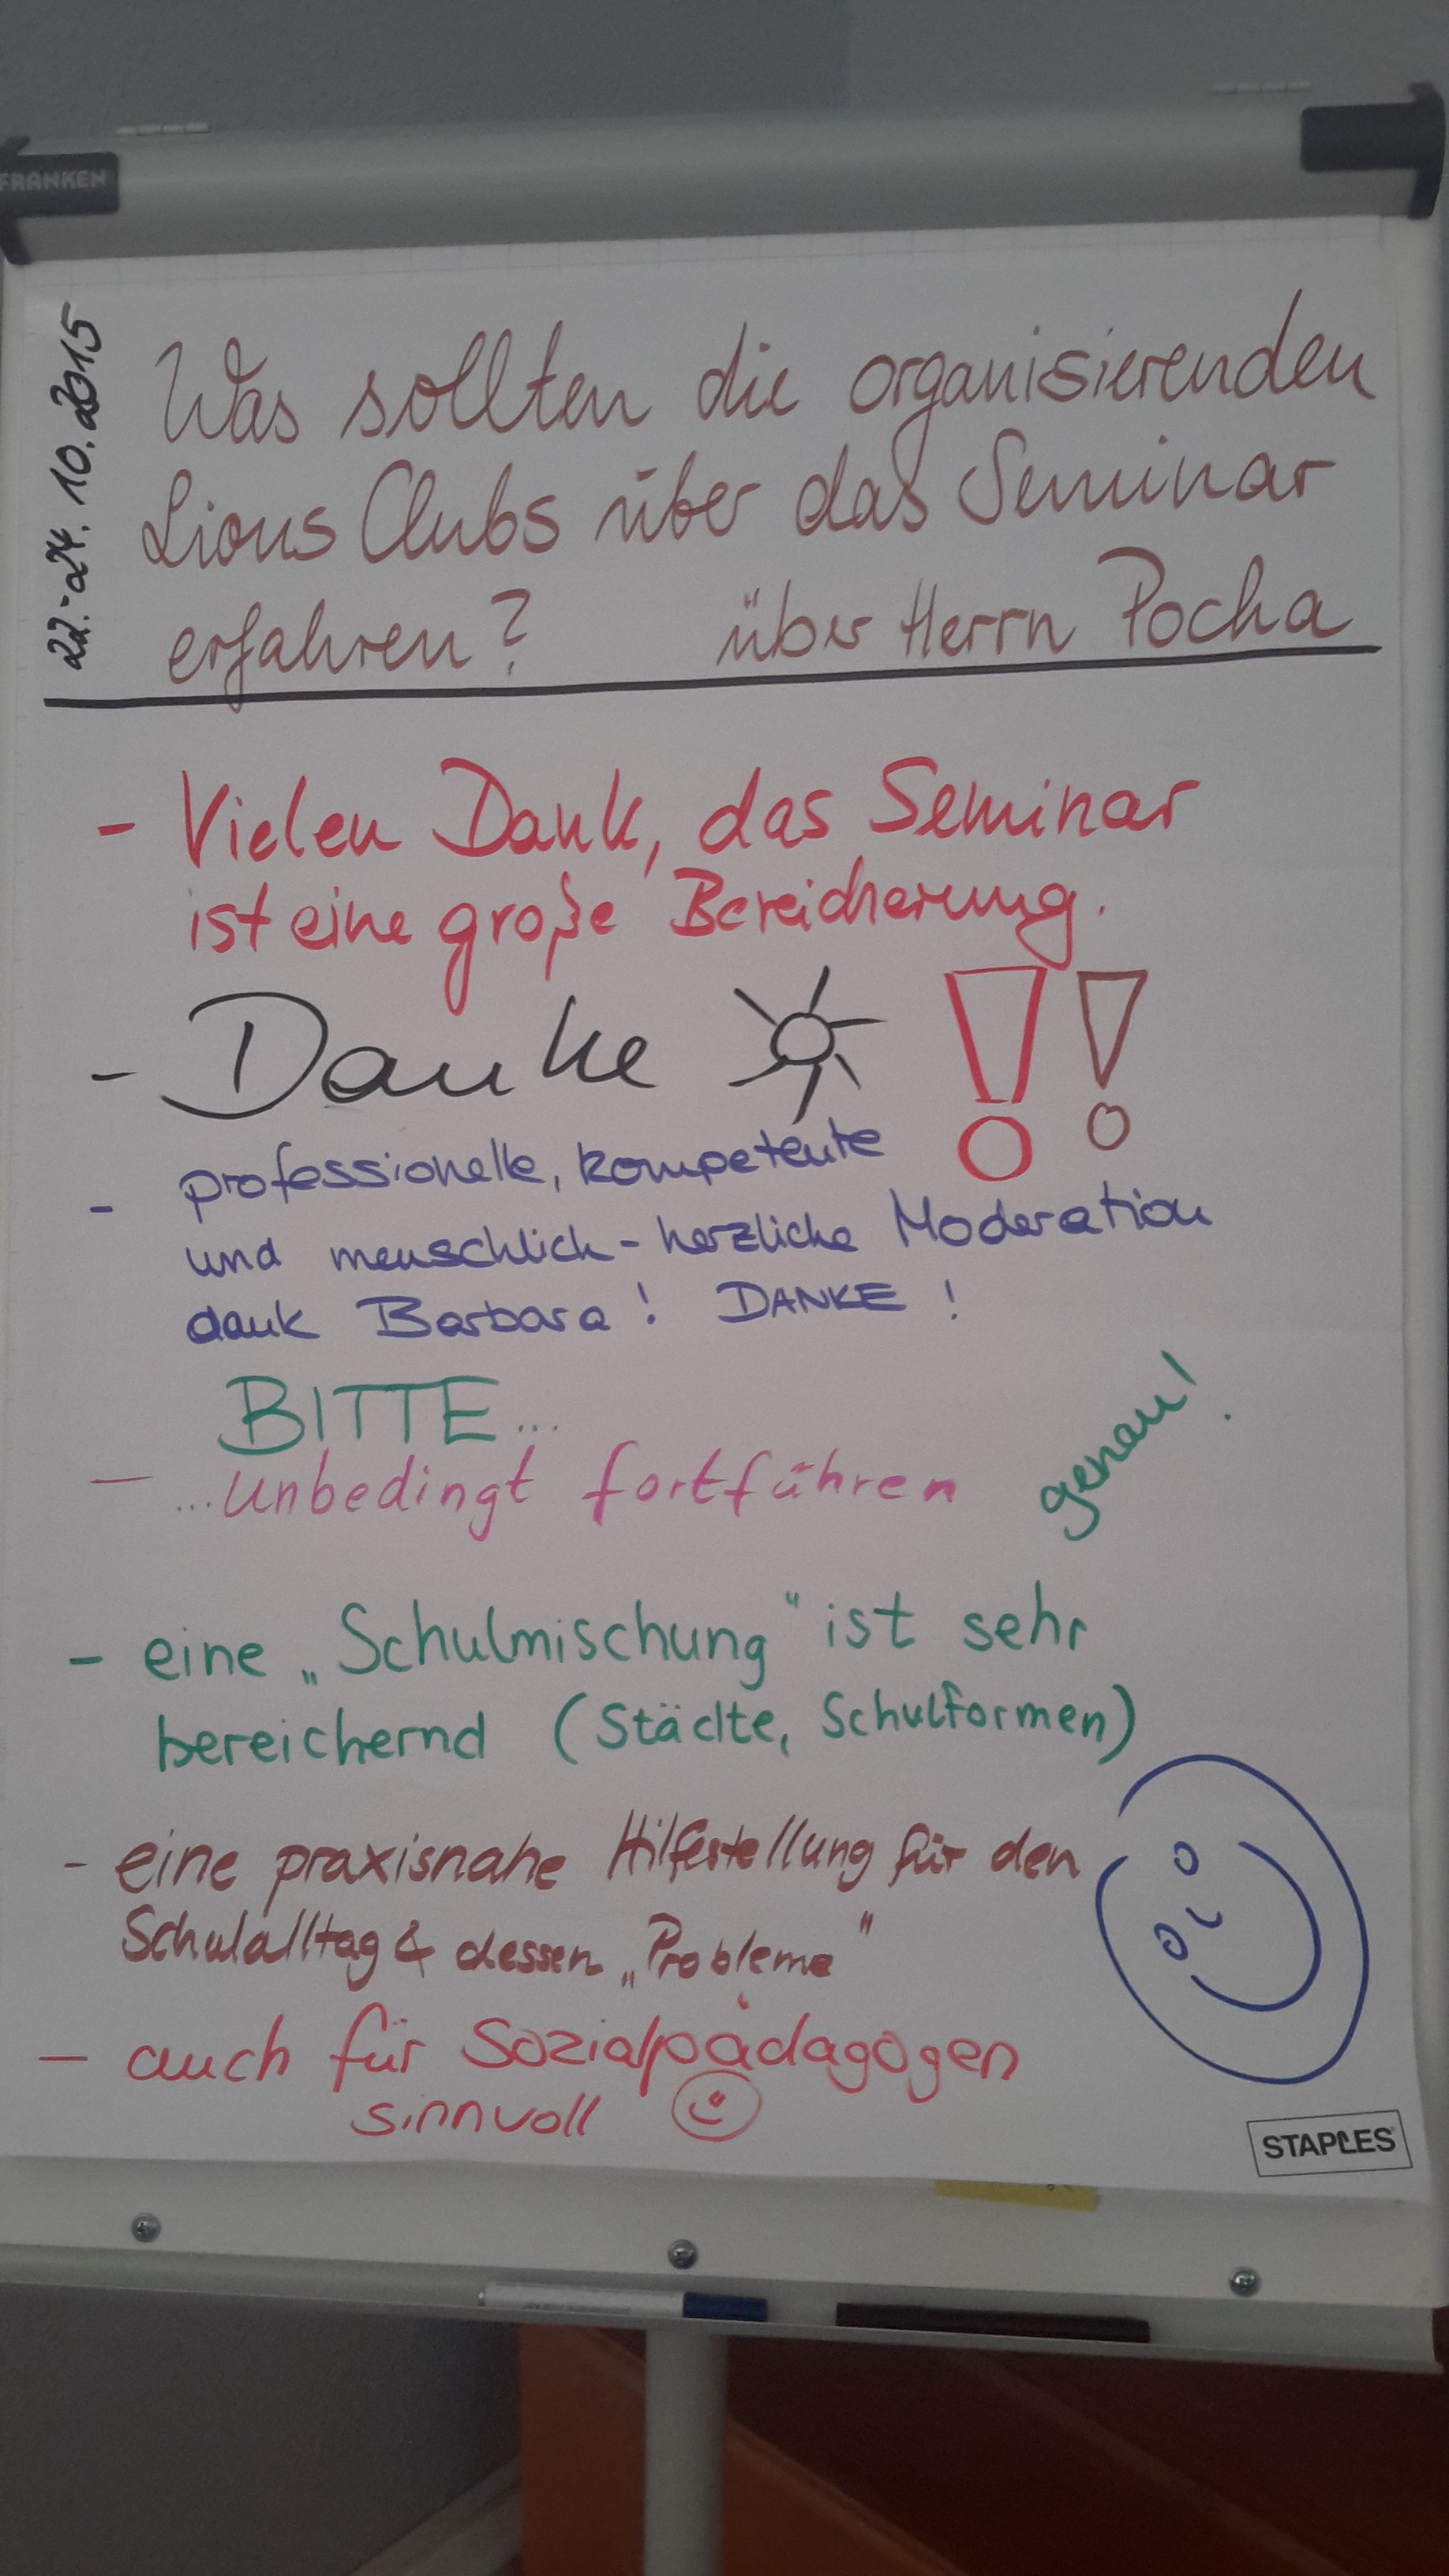 FRANKEN
22.-24. 10. 2015
Was sollten die organisierenden
Lions Clubs über das Seminar
erfahren? über Herrn Pocha
- Vielen Dank, das Seminar
ist eine große Bereicherung.
- Danke
- professionelle, kompetente
und menschlich-herzliche Moderation
dank Barbara! DANKE!
BITTE...
- ...unbedingt fortführen
genau!
- eine „Schulmischung“ ist sehr
bereichernd (Städte, Schulformen)
- eine praxisnahe Hilfestellung für den
Schulalltag & dessen „Probleme“
- auch für Sozialpädagogen
sinnvoll
STAPLES